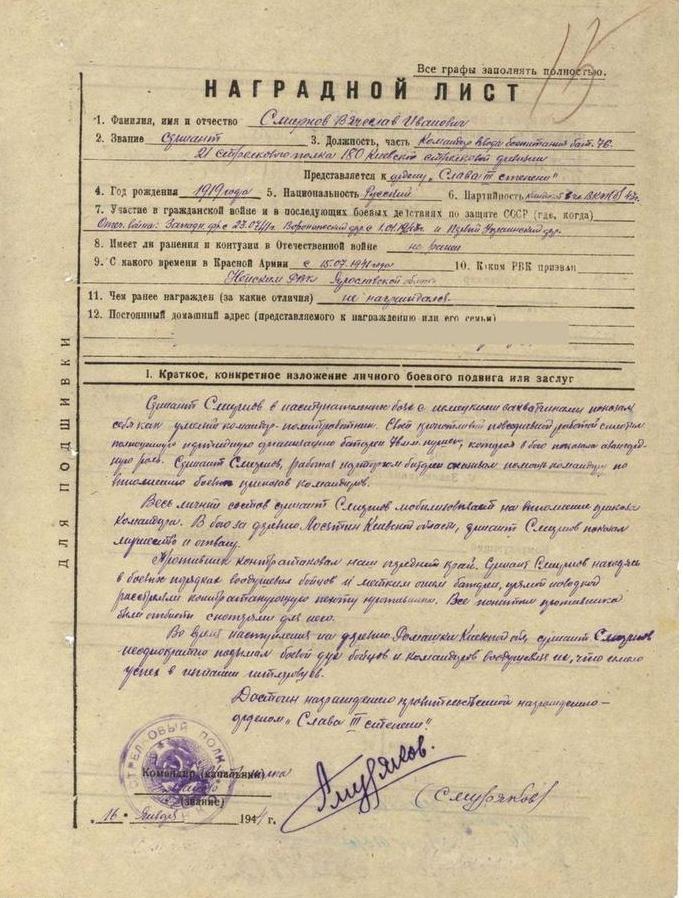 15
Все графы заполнять полностью.
НАГРАДНОЙ ЛИСТ
1. Фамилия, имя и отчество Смирнов Вячеслав Иванович
2. Звание сержант 3. Должность, часть Командир взвода боепитания бат. 76
21 стрелкового полка 180 Киевской стрелковой дивизии
Представляется к ордену „Слава III степени"
4. Год рождения 1919 года 5. Национальность Русский 6. Партийность ВКП(б)
7. Участие в гражданской войне и в последующих боевых действиях по защите СССР (где, когда)
Отеч. война: Западн. фр. с 23.07.41г. Воронежский фр. и Первый Украинский фр.
8. Имеет ли ранения и контузии в Отечественной войне не ранен
9. С какого времени в Красной Армии с 15.07.1941 года 10. Каким РВК призван
РВК Ярославской области
11. Чем ранее награжден (за какие отличия) не награждался
12. Постоянный домашний адрес (представляемого к награждению или его семьи)
I. Краткое, конкретное изложение личного боевого подвига или заслуг
Сержант Смирнов в наступательных боях с немецкими захватчиками показал
себя как командир-политработник. Своей повседневной работой сплотил
партийную организацию батареи, которая в бою показала авангард-
ную роль. Сержант Смирнов, работая парторгом батареи оказывал помощь командиру по
выполнению боевых приказов командиров.
Весь личный состав сержант Смирнов мобилизовывает на выполнение приказа
командира. В бою за д Киевской области, сержант Смирнов показал
мужество и отвагу.
Противник контратаковал наш передний край. Сержант Смирнов находясь
в боевых порядках воодушевлял бойцов и метким огнем батареи, прямой наводкой
расстреляли контратакующую пехоту противника. Все попытки противника
были отбиты с потерями для него.
Во время наступления на Ромашки Киевской обл. сержант Смирнов
неоднократно поднимал боевой дух бойцов и командиров воодушевляя их, что имело
успех в изгнании гитлеровцев.
Достоин награждению правительственной наградой –
орденом „Слава III степени".
СТРЕЛКОВЫЙ ПОЛК
Командир (начальник) полка
(звание)
„16" января 1944 г.